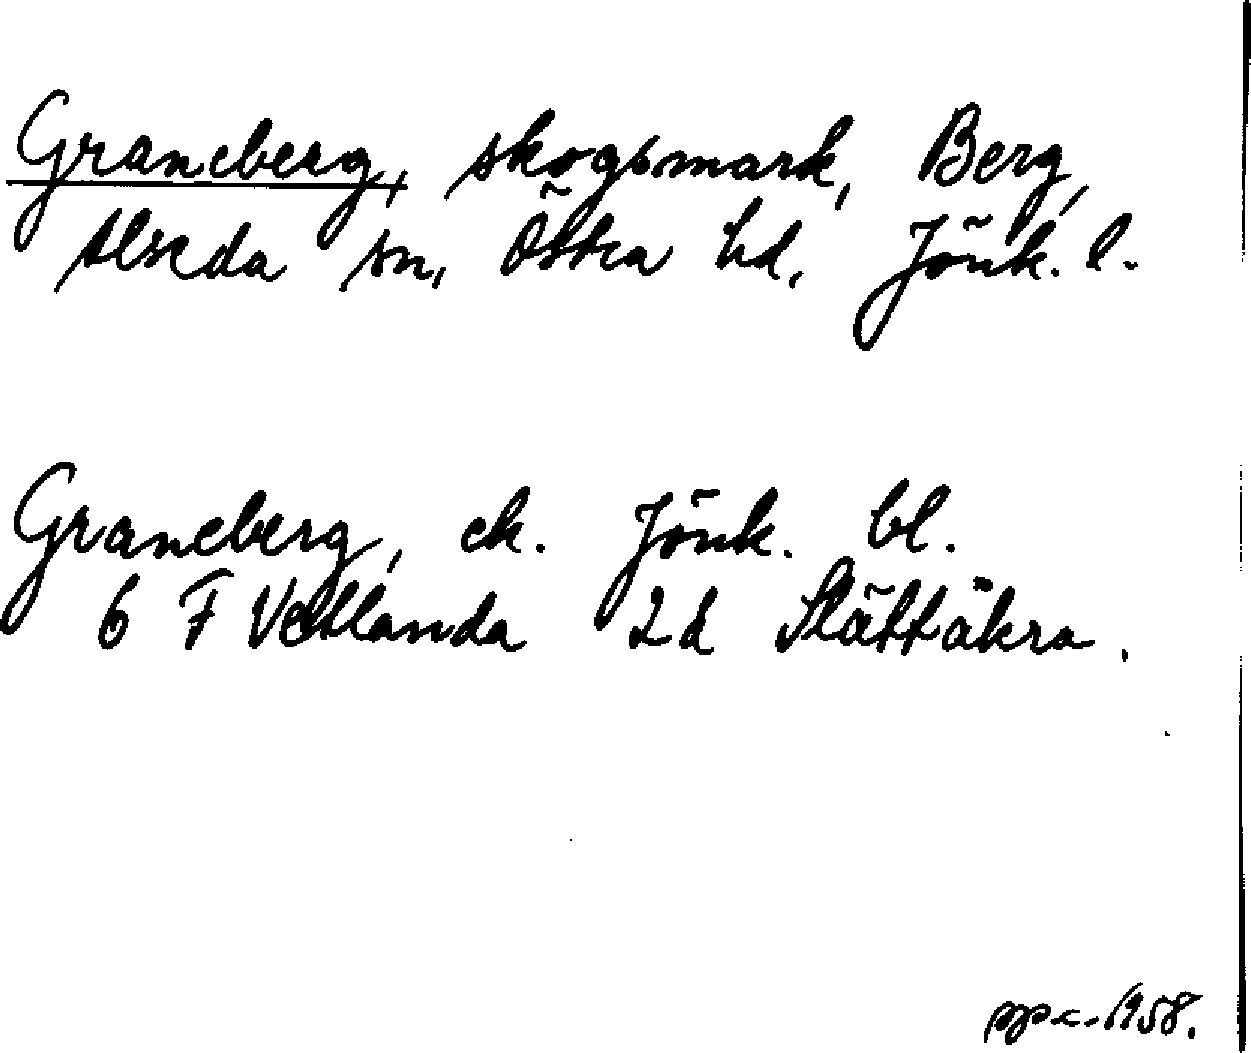 Graneberg, skogsmark, Berg,
Alseda sn, Östra hd, Jönk. l.
Graneberg, ek. Jönk. bl.
6 F Vetlanda 2d Slättåkra.
1958.